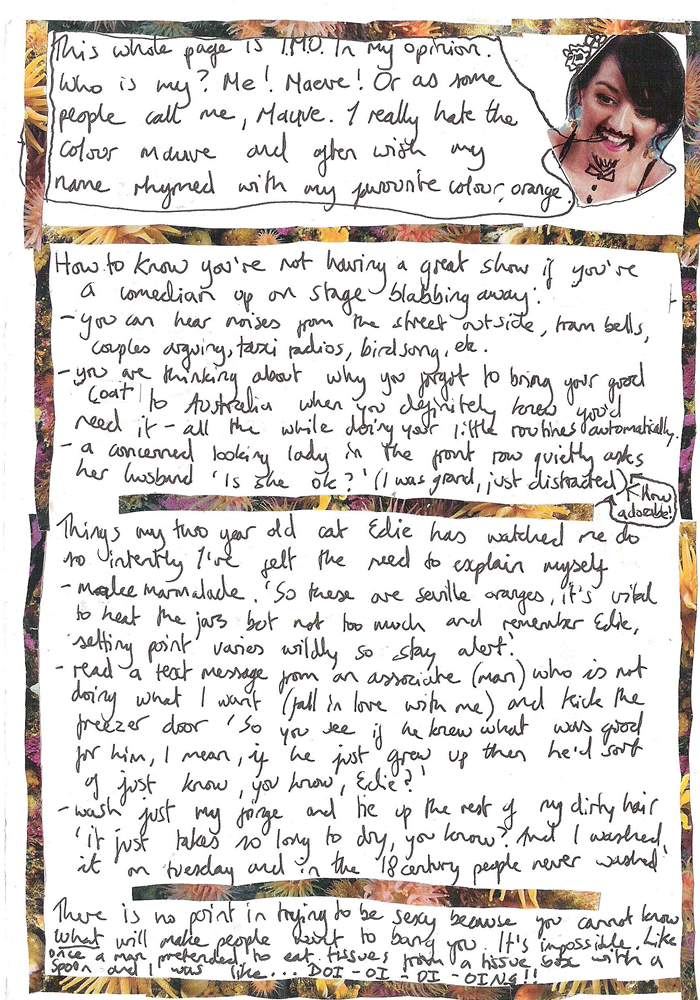 This whole page is I.M.O. In my opinion.
Who is my? Me! Maeve! Or as some
people call me, Mauve. I really hate the
colour mauve and often wish my
name rhymed with my favourite colour, orange.
How to know you're not having a great show if you're
a comedian up on stage 'blabbing away'.
- you can hear noises from the street outside, tram bells,
couples arguing, taxi radios, birdsong, etc.
- you are thinking about why you forgot to bring your good
coat to Australia when you definitely knew you'd
need it - all the while doing your little routines automatically.
- a concerned looking lady in the front row quietly asks
her husband 'Is she ok?' (I was grand, just distracted)
How
adorable!
Things my two year old cat Edie has watched me do
so intently I've felt the need to explain myself
- make marmalade. 'So these are seville oranges, it's vital
to heat the jars but not too much and remember Edie,
'setting point' varies wildly so stay alert.'
- read a text message from an associate (man) who is not
doing what I want (fall in love with me) and kick the
freezer door 'So you see if he knew what was good
for him, I mean, if he just grew up then he'd sort
of just know, you know, Edie?'
- wash just my forge and tie up the rest of my dirty hair
'it just takes so long to dry, you know? And I washed
it on tuesday and in the 18 century people never washed'
There is no point in trying to be sexy because you cannot know
what will make people want to bang you. It's impossible. Like
once a man pretended to eat tissues from a tissue box with a
spoon and I was like... DOI - OI - OI - OING!!